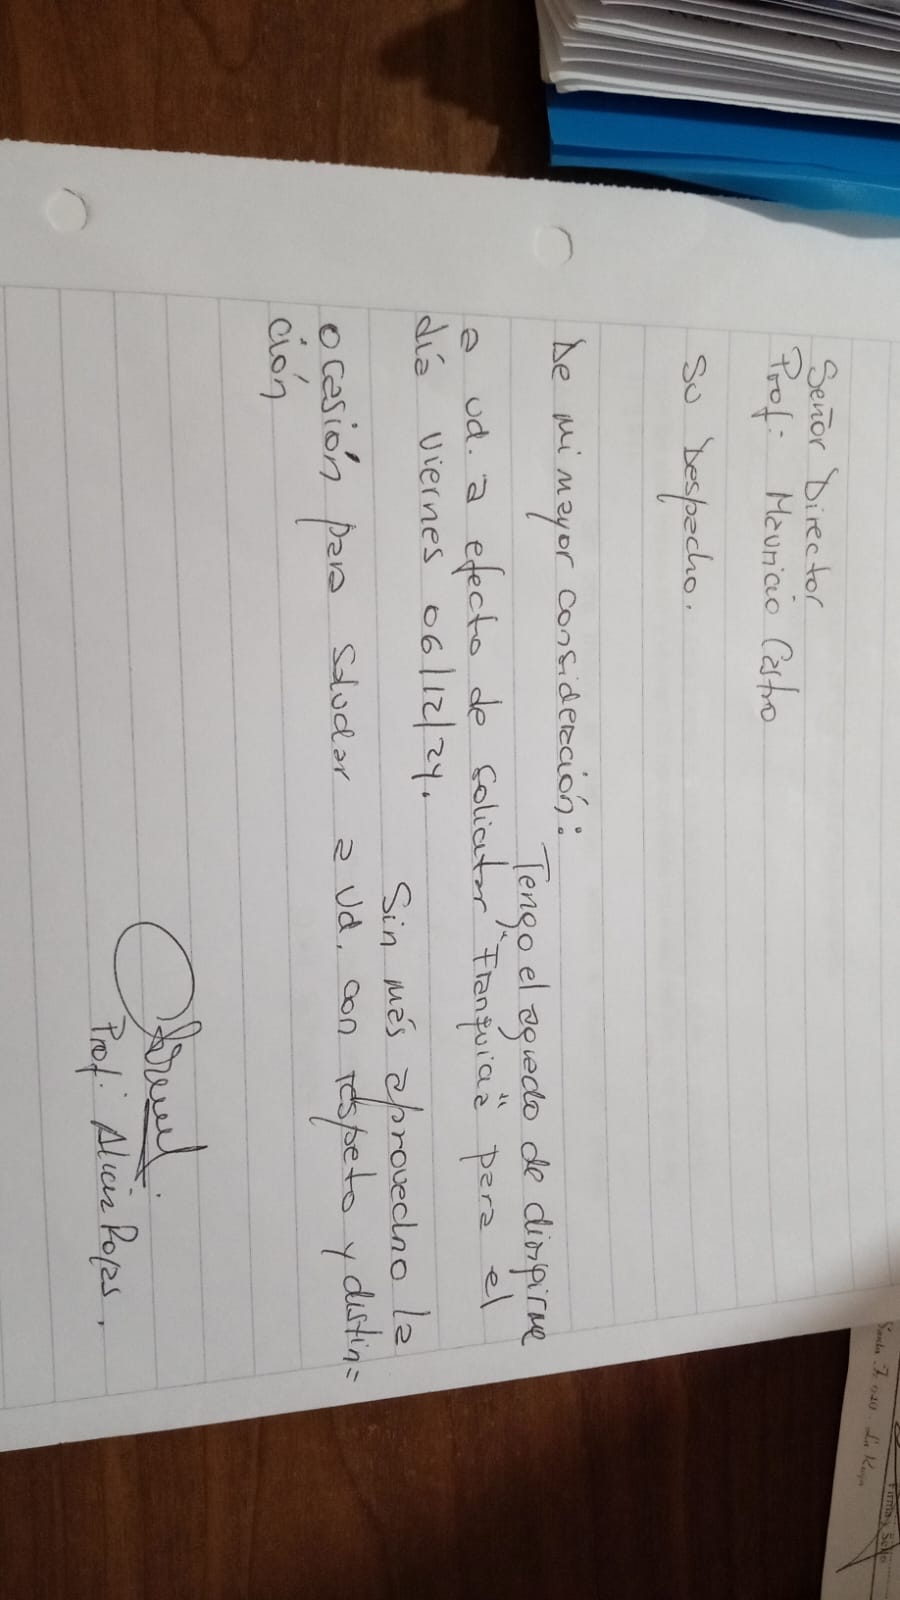 Señor Director
Prof: Mauricio Castro
Su Despacho.
De mi mayor consideración:
Tengo el agrado de dirigirme
a ud. a efecto de solicitar "Franquicia" para el
día viernes 06/12/24.
Sin más aprovecho la
ocasión para saludar a Ud. con respeto y distin=
ción
Prof: Alicia Rojas.
Firma y Sello